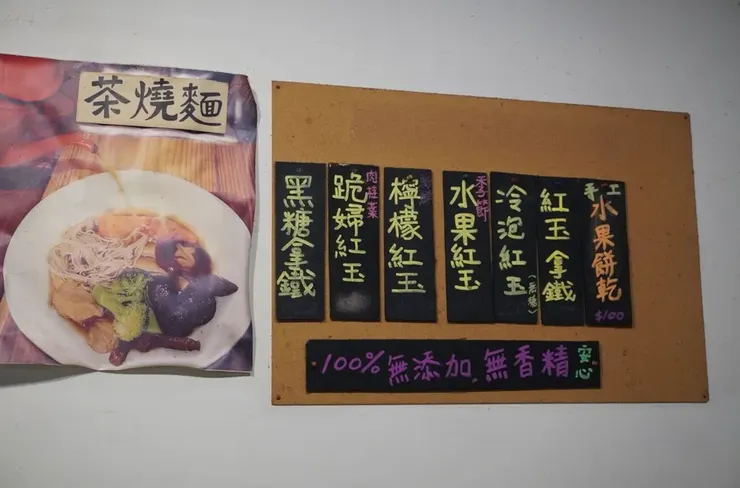 茶燒麵
手工水果餅乾
$100
紅玉拿鐵
冷泡紅玉(無糖)
季節水果紅玉
檸檬紅玉
肉桂葉跪婦紅玉
黑糖拿鐵
100%無添加 無香精 安心